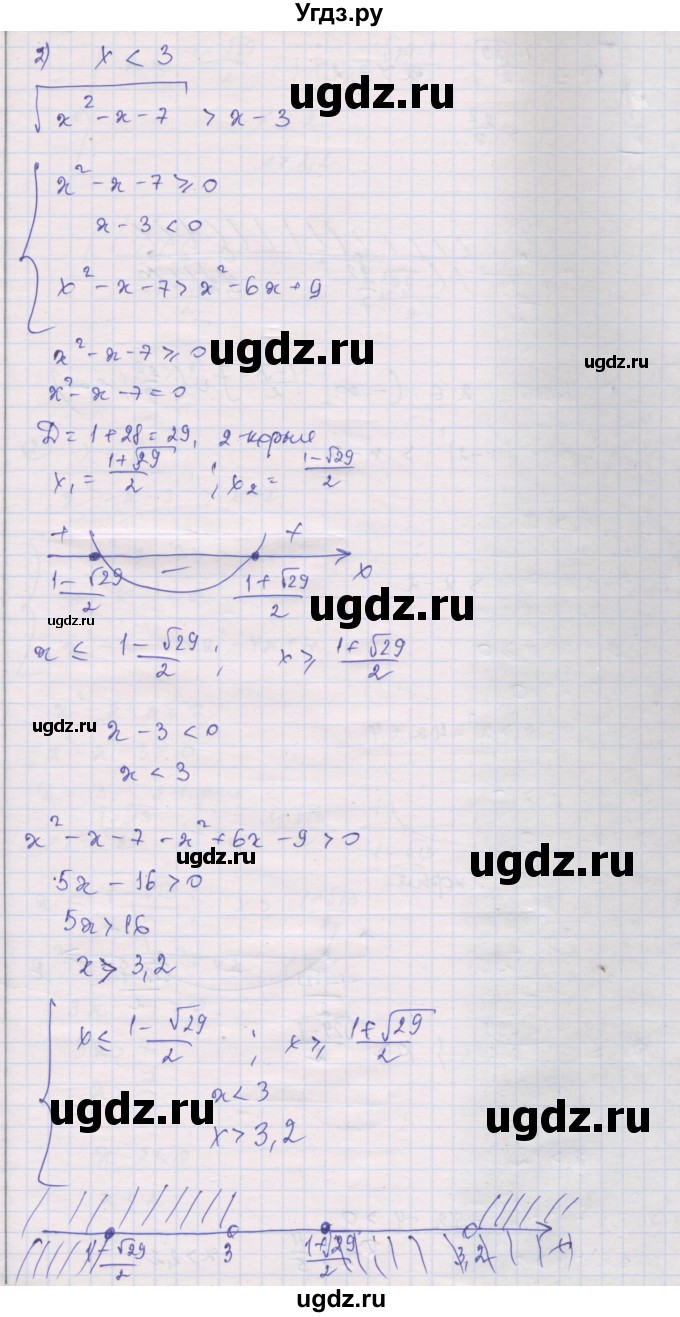 Угдз.ру
2) x < 3
ugdz.ru
√(x² - x - 7) > x - 3
x² - x - 7 ≥ 0
x - 3 < 0
x² - x - 7 > x² - 6x + 9
x² - x - 7 ≥ 0
ugdz.ru
ugdz.ru
x² - x - 7 = 0
D = 1 + 28 = 29, 2 корня
x₁ = (1+√29)/2 ; x₂ = (1-√29)/2
+ - + x
(1-√29)/2 (1+√29)/2
ugdz.ru
ugdz.ru
x ≤ (1-√29)/2 ; x ≥ (1+√29)/2
ugdz.ru
x - 3 < 0
x < 3
x² - x - 7 - x² + 6x - 9 > 0
ugdz.ru
ugdz.ru
5x - 16 > 0
5x > 16
x > 3,2
x ≤ (1-√29)/2 ; x ≥ (1+√29)/2
x < 3
ugdz.ru
ugdz.ru
x > 3,2
(1-√29)/2 3 (1+√29)/2 3,2 x
ugdz.ru